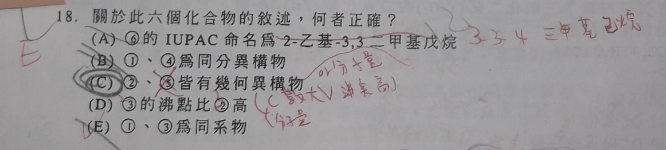 18. 關於此六個化合物的敘述，何者正確？
(A) ⑥的 IUPAC 命名為 2-乙基-3,3 二甲基戊烷 3.3.4 三甲基己烷
(B) ①、④為同分異構物
(C) ②、⑤皆有幾何異構物
(D) ③的沸點比②高 (C數大∨沸點高)
(E) ①、③為同系物 分子量
E